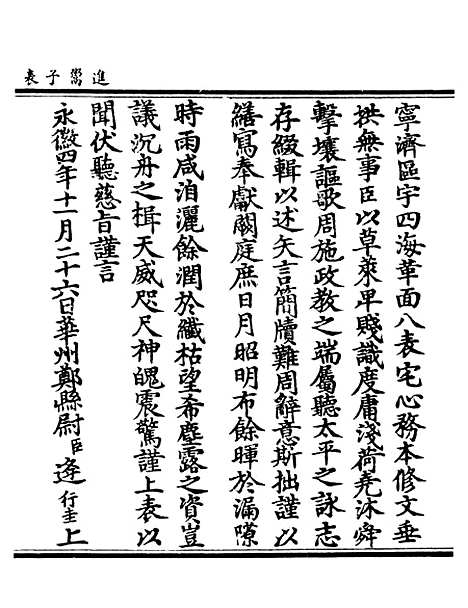 進鬻子表
寧濟區宇四海革面八表宅心務本修文垂
拱無事臣以草萊卑賤識度庸淺荷堯沐舜
擊壤謳歌周施政教之端屬聽太平之詠志
存綴輯以述矢言簡牘難周辭意斯拙謹以
繕寫奉獻闕庭庶日月昭明布餘暉於漏隙
時雨咸洎灑餘潤於纖枯望希塵露之資豈
議沉舟之楫天威咫尺神魄震驚謹上表以
聞伏聽慈旨謹言
永徽四年十一月二十六日華州鄭縣尉臣逄行珪上